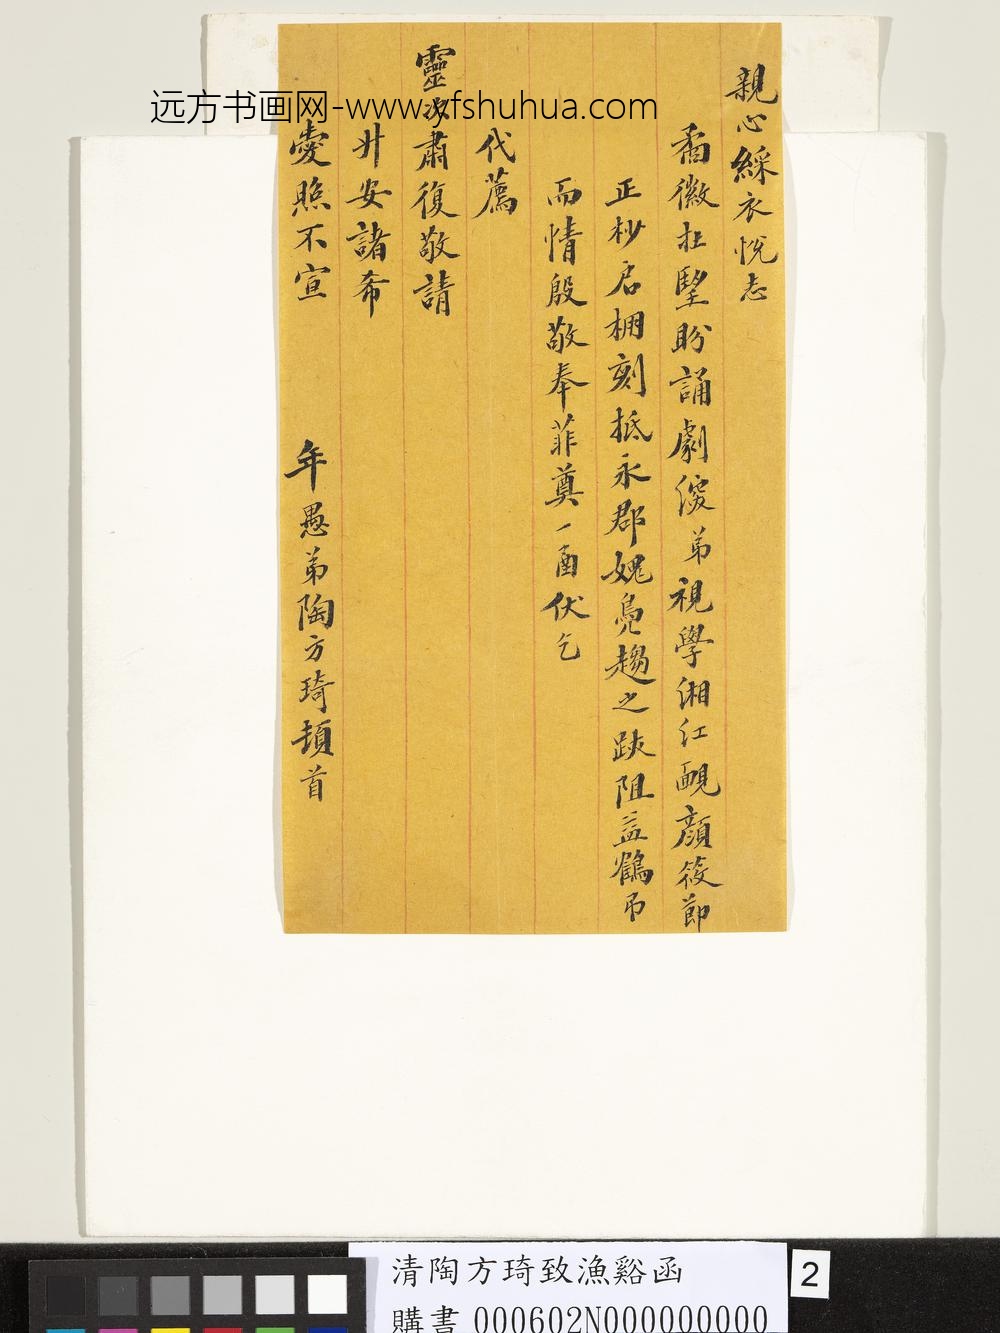 親心綵衣悅志
矞徽在望盼誦劇深弟視學湘江靦顏筱節
正杪启棚刻抵永郡媿鳧趨之跡阻益鶴弔
而情殷敬奉菲奠一函伏乞
代薦
靈次肅復敬請
升安諸希
愛照不宣
年愚弟陶方琦頓首
远方书画网-www.yfshuhua.com
清陶方琦致漁谿函
購書 000602N000000000
2